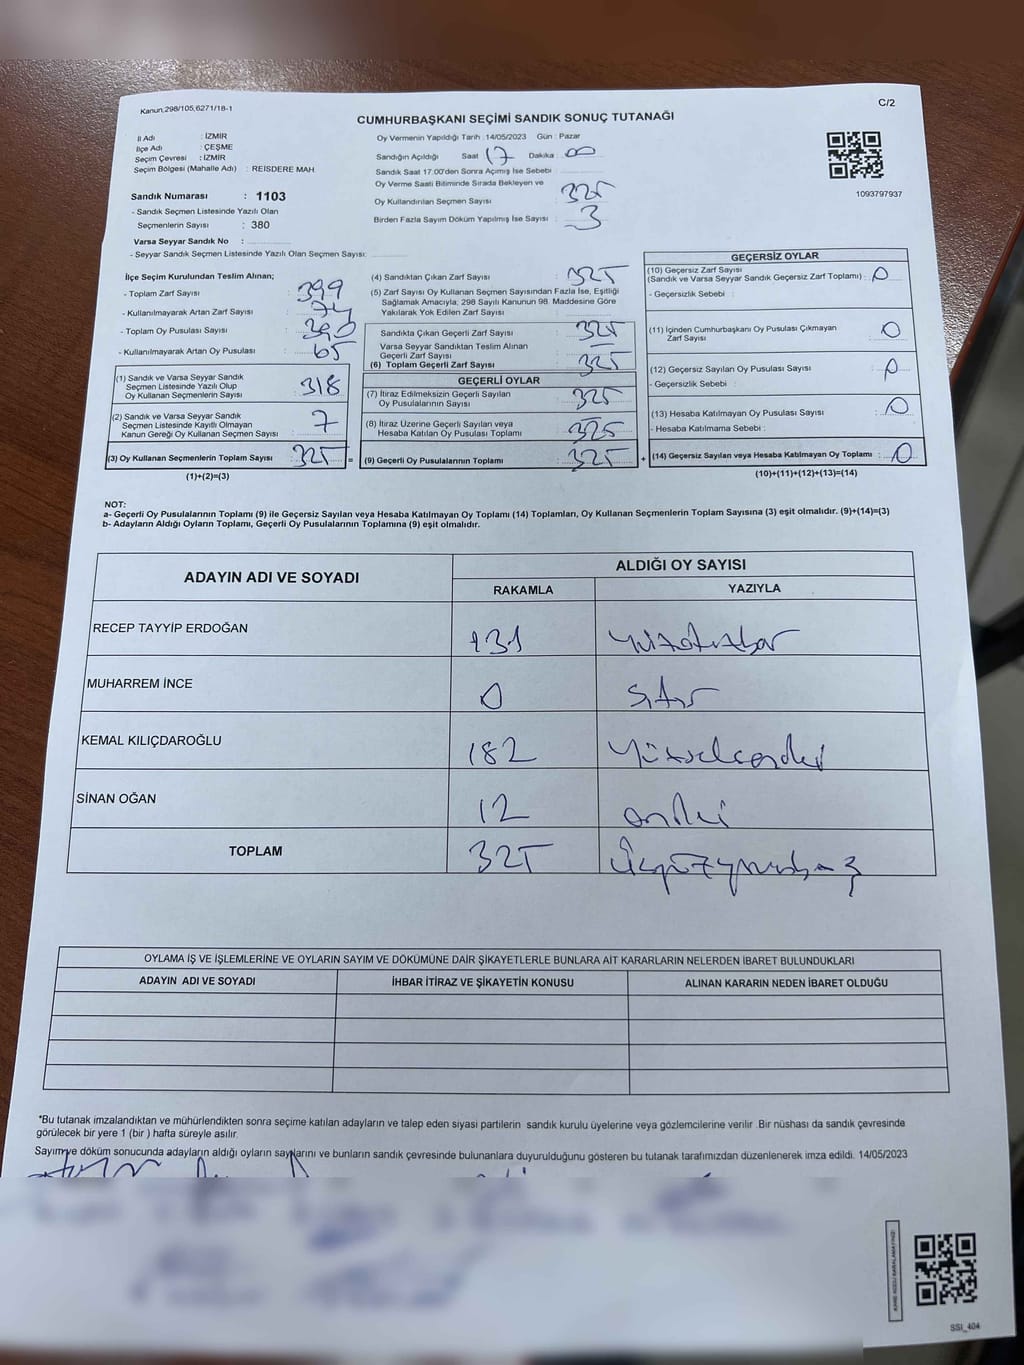 Kanun,298/105,6271/18-1
C/2
CUMHURBAŞKANI SEÇİMİ SANDIK SONUÇ TUTANAĞI
İl Adı : İZMİR
İlçe Adı : ÇEŞME
Seçim Çevresi : İZMİR
Seçim Bölgesi (Mahalle Adı) : REİSDERE MAH
Sandık Numarası : 1103
- Sandık Seçmen Listesinde Yazılı Olan
Seçmenlerin Sayısı : 380
Varsa Seyyar Sandık No :
- Seyyar Sandık Seçmen Listesinde Yazılı Olan Seçmen Sayısı:
Oy Vermenin Yapıldığı Tarih :14/05/2023 Gün : Pazar
Sandığın Açıldığı Saat 17 Dakika : 00
Sandık Saat 17.00'den Sonra Açımış İse Sebebi :
Oy Verme Saati Bitiminde Sırada Bekleyen ve
Oy Kullandırılan Seçmen Sayısı : 325
Birden Fazla Sayım Döküm Yapılmış İse Sayısı : 3
1093797937
İlçe Seçim Kurulundan Teslim Alınan;
- Toplam Zarf Sayısı : 399
- Kullanılmayarak Artan Zarf Sayısı : 74
- Toplam Oy Pusulası Sayısı : 390
- Kullanılmayarak Artan Oy Pusulası : 65
(1) Sandık ve Varsa Seyyar Sandık
Seçmen Listesinde Yazılı Olup
Oy Kullanan Seçmenlerin Sayısı : 318
(2) Sandık ve Varsa Seyyar Sandık
Seçmen Listesinde Kayıtlı Olmayan
Kanun Gereği Oy Kullanan Seçmen Sayısı : 7
(3) Oy Kullanan Seçmenlerin Toplam Sayısı : 325 =
(1)+(2)=(3)
(4) Sandıktan Çıkan Zarf Sayısı : 325
(5) Zarf Sayısı Oy Kullanan Seçmen Sayısından Fazla İse, Eşitliği
Sağlamak Amacıyla; 298 Sayılı Kanunun 98. Maddesine Göre
Yakılarak Yok Edilen Zarf Sayısı :
Sandıkta Çıkan Geçerli Zarf Sayısı : 325
Varsa Seyyar Sandıktan Teslim Alınan
Geçerli Zarf Sayısı : –
(6) Toplam Geçerli Zarf Sayısı : 325
GEÇERLİ OYLAR
(7) İtiraz Edilmeksizin Geçerli Sayılan
Oy Pusulalarının Sayısı : 325
(8) İtiraz Üzerine Geçerli Sayılan veya
Hesaba Katılan Oy Pusulası Toplamı : 325
(9) Geçerli Oy Pusulalarının Toplamı : 325 +
GEÇERSİZ OYLAR
(10) Geçersiz Zarf Sayısı
(Sandık ve Varsa Seyyar Sandık Geçersiz Zarf Toplamı) : 0
- Geçersizlik Sebebi :
(11) İçinden Cumhurbaşkanı Oy Pusulası Çıkmayan
Zarf Sayısı : 0
(12) Geçersiz Sayılan Oy Pusulası Sayısı : 0
- Geçersizlik Sebebi :
(13) Hesaba Katılmayan Oy Pusulası Sayısı : 0
- Hesaba Katılmama Sebebi :
(14) Geçersiz Sayılan veya Hesaba Katılmayan Oy Toplamı : 0
(10)+(11)+(12)+(13)=(14)
NOT:
a- Geçerli Oy Pusulalarının Toplamı (9) ile Geçersiz Sayılan veya Hesaba Katılmayan Oy Toplamı (14) Toplamları, Oy Kullanan Seçmenlerin Toplam Sayısına (3) eşit olmalıdır. (9)+(14)=(3)
b- Adayların Aldığı Oyların Toplamı, Geçerli Oy Pusulalarının Toplamına (9) eşit olmalıdır.
ADAYIN ADI VE SOYADI
ALDIĞI OY SAYISI
RAKAMLA YAZIYLA
RECEP TAYYİP ERDOĞAN 131 yüzotuzbir
MUHARREM İNCE 0 sıfır
KEMAL KILIÇDAROĞLU 182 yüzsekseniki
SİNAN OĞAN 12 oniki
TOPLAM 325 üçyüzyirmibeş
OYLAMA İŞ VE İŞLEMLERİNE VE OYLARIN SAYIM VE DÖKÜMÜNE DAİR ŞİKAYETLERLE BUNLARA AİT KARARLARIN NELERDEN İBARET BULUNDUKLARI
ADAYIN ADI VE SOYADI İHBAR İTİRAZ VE ŞİKAYETİN KONUSU ALINAN KARARIN NEDEN İBARET OLDUĞU
*Bu tutanak imzalandıktan ve mühürlendikten sonra seçime katılan adayların ve talep eden siyasi partilerin sandık kurulu üyelerine veya gözlemcilerine verilir .Bir nüshası da sandık çevresinde
görülecek bir yere 1 (bir ) hafta süreyle asılır.
Sayım ve döküm sonucunda adayların aldığı oyların sayılarını ve bunların sandık çevresinde bulunanlara duyurulduğunu gösteren bu tutanak tarafımızdan düzenlenerek imza edildi. 14/05/2023
SSİ_404